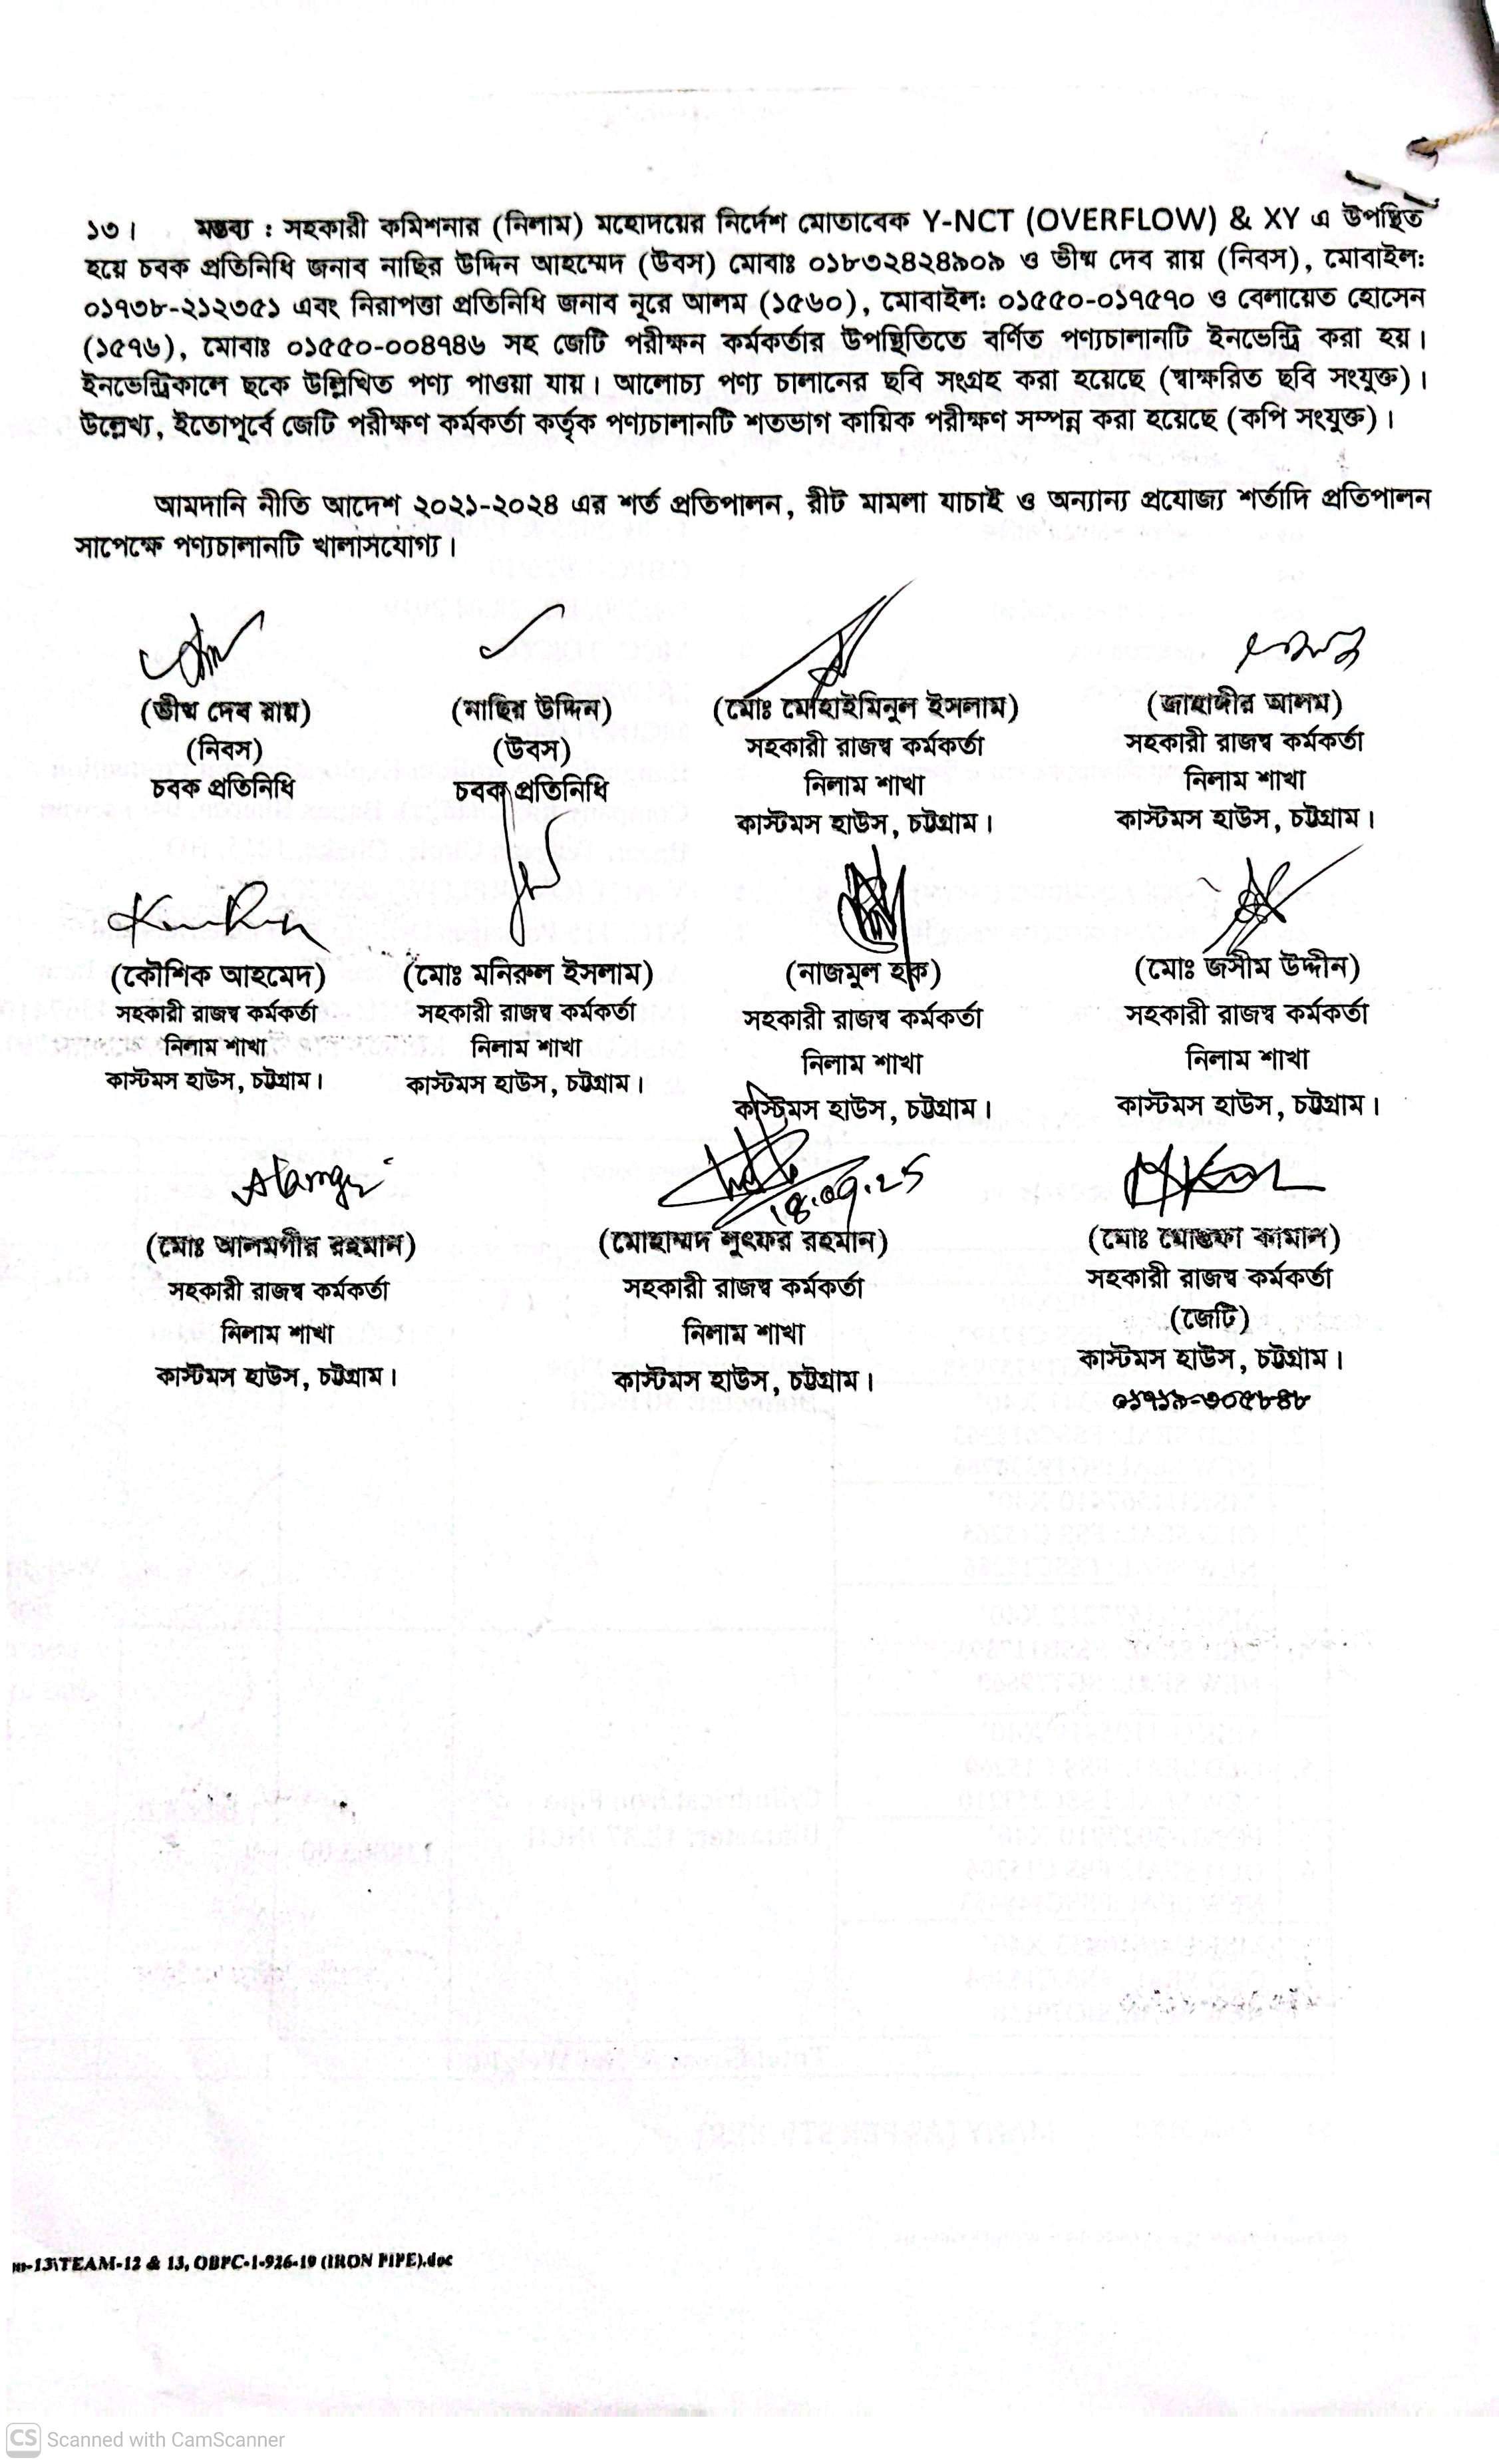 ১৩। মন্তব্য : সহকারী কমিশনার (নিলাম) মহোদয়ের নির্দেশ মোতাবেক Y-NCT (OVERFLOW) & XY এ উপস্থিত
হয়ে চবক প্রতিনিধি জনাব নাছির উদ্দিন আহম্মেদ (উবস) মোবাঃ ০১৮৩২৪২৪৯০৯ ও ভীষ্ম দেব রায় (নিবস), মোবাইল:
০১৭৩৮-২১২৩৫১ এবং নিরাপত্তা প্রতিনিধি জনাব নূরে আলম (১৫৬০), মোবাইল: ০১৫৫০-০১৭৫৭০ ও বেলায়েত হোসেন
(১৫৭৬), মোবাঃ ০১৫৫০-০০৪৭৪৬ সহ জেটি পরীক্ষন কর্মকর্তার উপস্থিতিতে বর্ণিত পণ্যচালানটি ইনভেন্ট্রি করা হয়।
ইনভেন্ট্রিকালে ছকে উল্লিখিত পণ্য পাওয়া যায়। আলোচ্য পণ্য চালানের ছবি সংগ্রহ করা হয়েছে (স্বাক্ষরিত ছবি সংযুক্ত)।
উল্লেখ্য, ইতোপূর্বে জেটি পরীক্ষণ কর্মকর্তা কর্তৃক পণ্যচালানটি শতভাগ কায়িক পরীক্ষণ সম্পন্ন করা হয়েছে (কপি সংযুক্ত)।
আমদানি নীতি আদেশ ২০২১-২০২৪ এর শর্ত প্রতিপালন, রীট মামলা যাচাই ও অন্যান্য প্রযোজ্য শর্তাদি প্রতিপালন
সাপেক্ষে পণ্যচালানটি খালাসযোগ্য।
(ভীষ্ম দেব রায়) (নাছির উদ্দিন) (মোঃ মোহাইমিনুল ইসলাম) (জাহাঙ্গীর আলম)
(নিবস) (উবস) সহকারী রাজস্ব কর্মকর্তা সহকারী রাজস্ব কর্মকর্তা
চবক প্রতিনিধি চবক প্রতিনিধি নিলাম শাখা নিলাম শাখা
কাস্টমস হাউস, চট্টগ্রাম। কাস্টমস হাউস, চট্টগ্রাম।
(কৌশিক আহমেদ) (মোঃ মনিরুল ইসলাম) (নাজমুল হক) (মোঃ জসীম উদ্দীন)
সহকারী রাজস্ব কর্মকর্তা সহকারী রাজস্ব কর্মকর্তা সহকারী রাজস্ব কর্মকর্তা সহকারী রাজস্ব কর্মকর্তা
নিলাম শাখা নিলাম শাখা নিলাম শাখা নিলাম শাখা
কাস্টমস হাউস, চট্টগ্রাম। কাস্টমস হাউস, চট্টগ্রাম। কাস্টমস হাউস, চট্টগ্রাম। কাস্টমস হাউস, চট্টগ্রাম।
18.09.25
(মোঃ আলমগীর রহমান) (মোহাম্মদ লুৎফর রহমান) (মোঃ মোস্তফা কামাল)
সহকারী রাজস্ব কর্মকর্তা সহকারী রাজস্ব কর্মকর্তা সহকারী রাজস্ব কর্মকর্তা
নিলাম শাখা নিলাম শাখা (জেটি)
কাস্টমস হাউস, চট্টগ্রাম। কাস্টমস হাউস, চট্টগ্রাম। কাস্টমস হাউস, চট্টগ্রাম।
০১৭১৯-৩০৫৮৪৮
m-13\TEAM-12 & 13, OBPC-1-926-19 (IRON PIPE).doc
CS Scanned with CamScanner